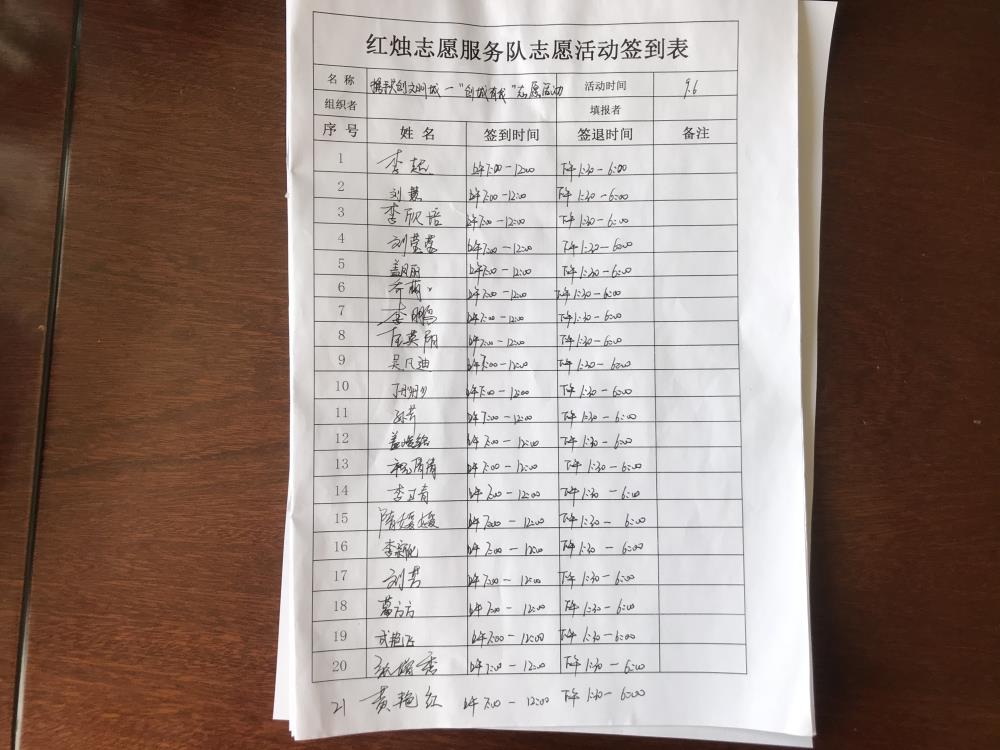 红烛志愿服务队志愿活动签到表
名 称 携手创文明城一"创城有我"志愿活动 活动时间 9.6
组织者 填报者
序 号 姓 名 签到时间 签退时间 备注
1 李超 上午7:00-12:00 下午1:30-6:00
2 刘慧 上午7:00-12:00 下午1:30-6:00
3 李欣培 上午7:00-12:00 下午1:30-6:00
4 刘莹莹 上午7:00-12:00 下午1:30-6:00
5 盖月丽 上午7:00-12:00 下午1:30-6:00
6 乔萌 上午7:00-12:00 下午1:30-6:00
7 李鹏 上午7:00-12:00 下午1:30-6:00
8 上午7:00-12:00 下午1:30-6:00
9 吴凡迪 上午7:00-12:00 下午1:30-6:00
10 上午7:00-12:00 下午1:30-6:00
11 孙芹 上午7:00-12:00 下午1:30-6:00
12 上午7:00-12:00 下午1:30-6:00
13 上午7:00-12:00 下午1:30-6:00
14 上午7:00-12:00 下午1:30-6:00
15 隋媛媛 上午7:00-12:00 下午1:30-6:00
16 上午7:00-12:00 下午1:30-6:00
17 上午7:00-12:00 下午1:30-6:00
18 葛方方 上午7:00-12:00 下午1:30-6:00
19 武艳飞 上午7:00-12:00 下午1:30-6:00
20 上午7:00-12:00 下午1:30-6:00
21 黄艳红 上午7:00-12:00 下午1:30-6:00